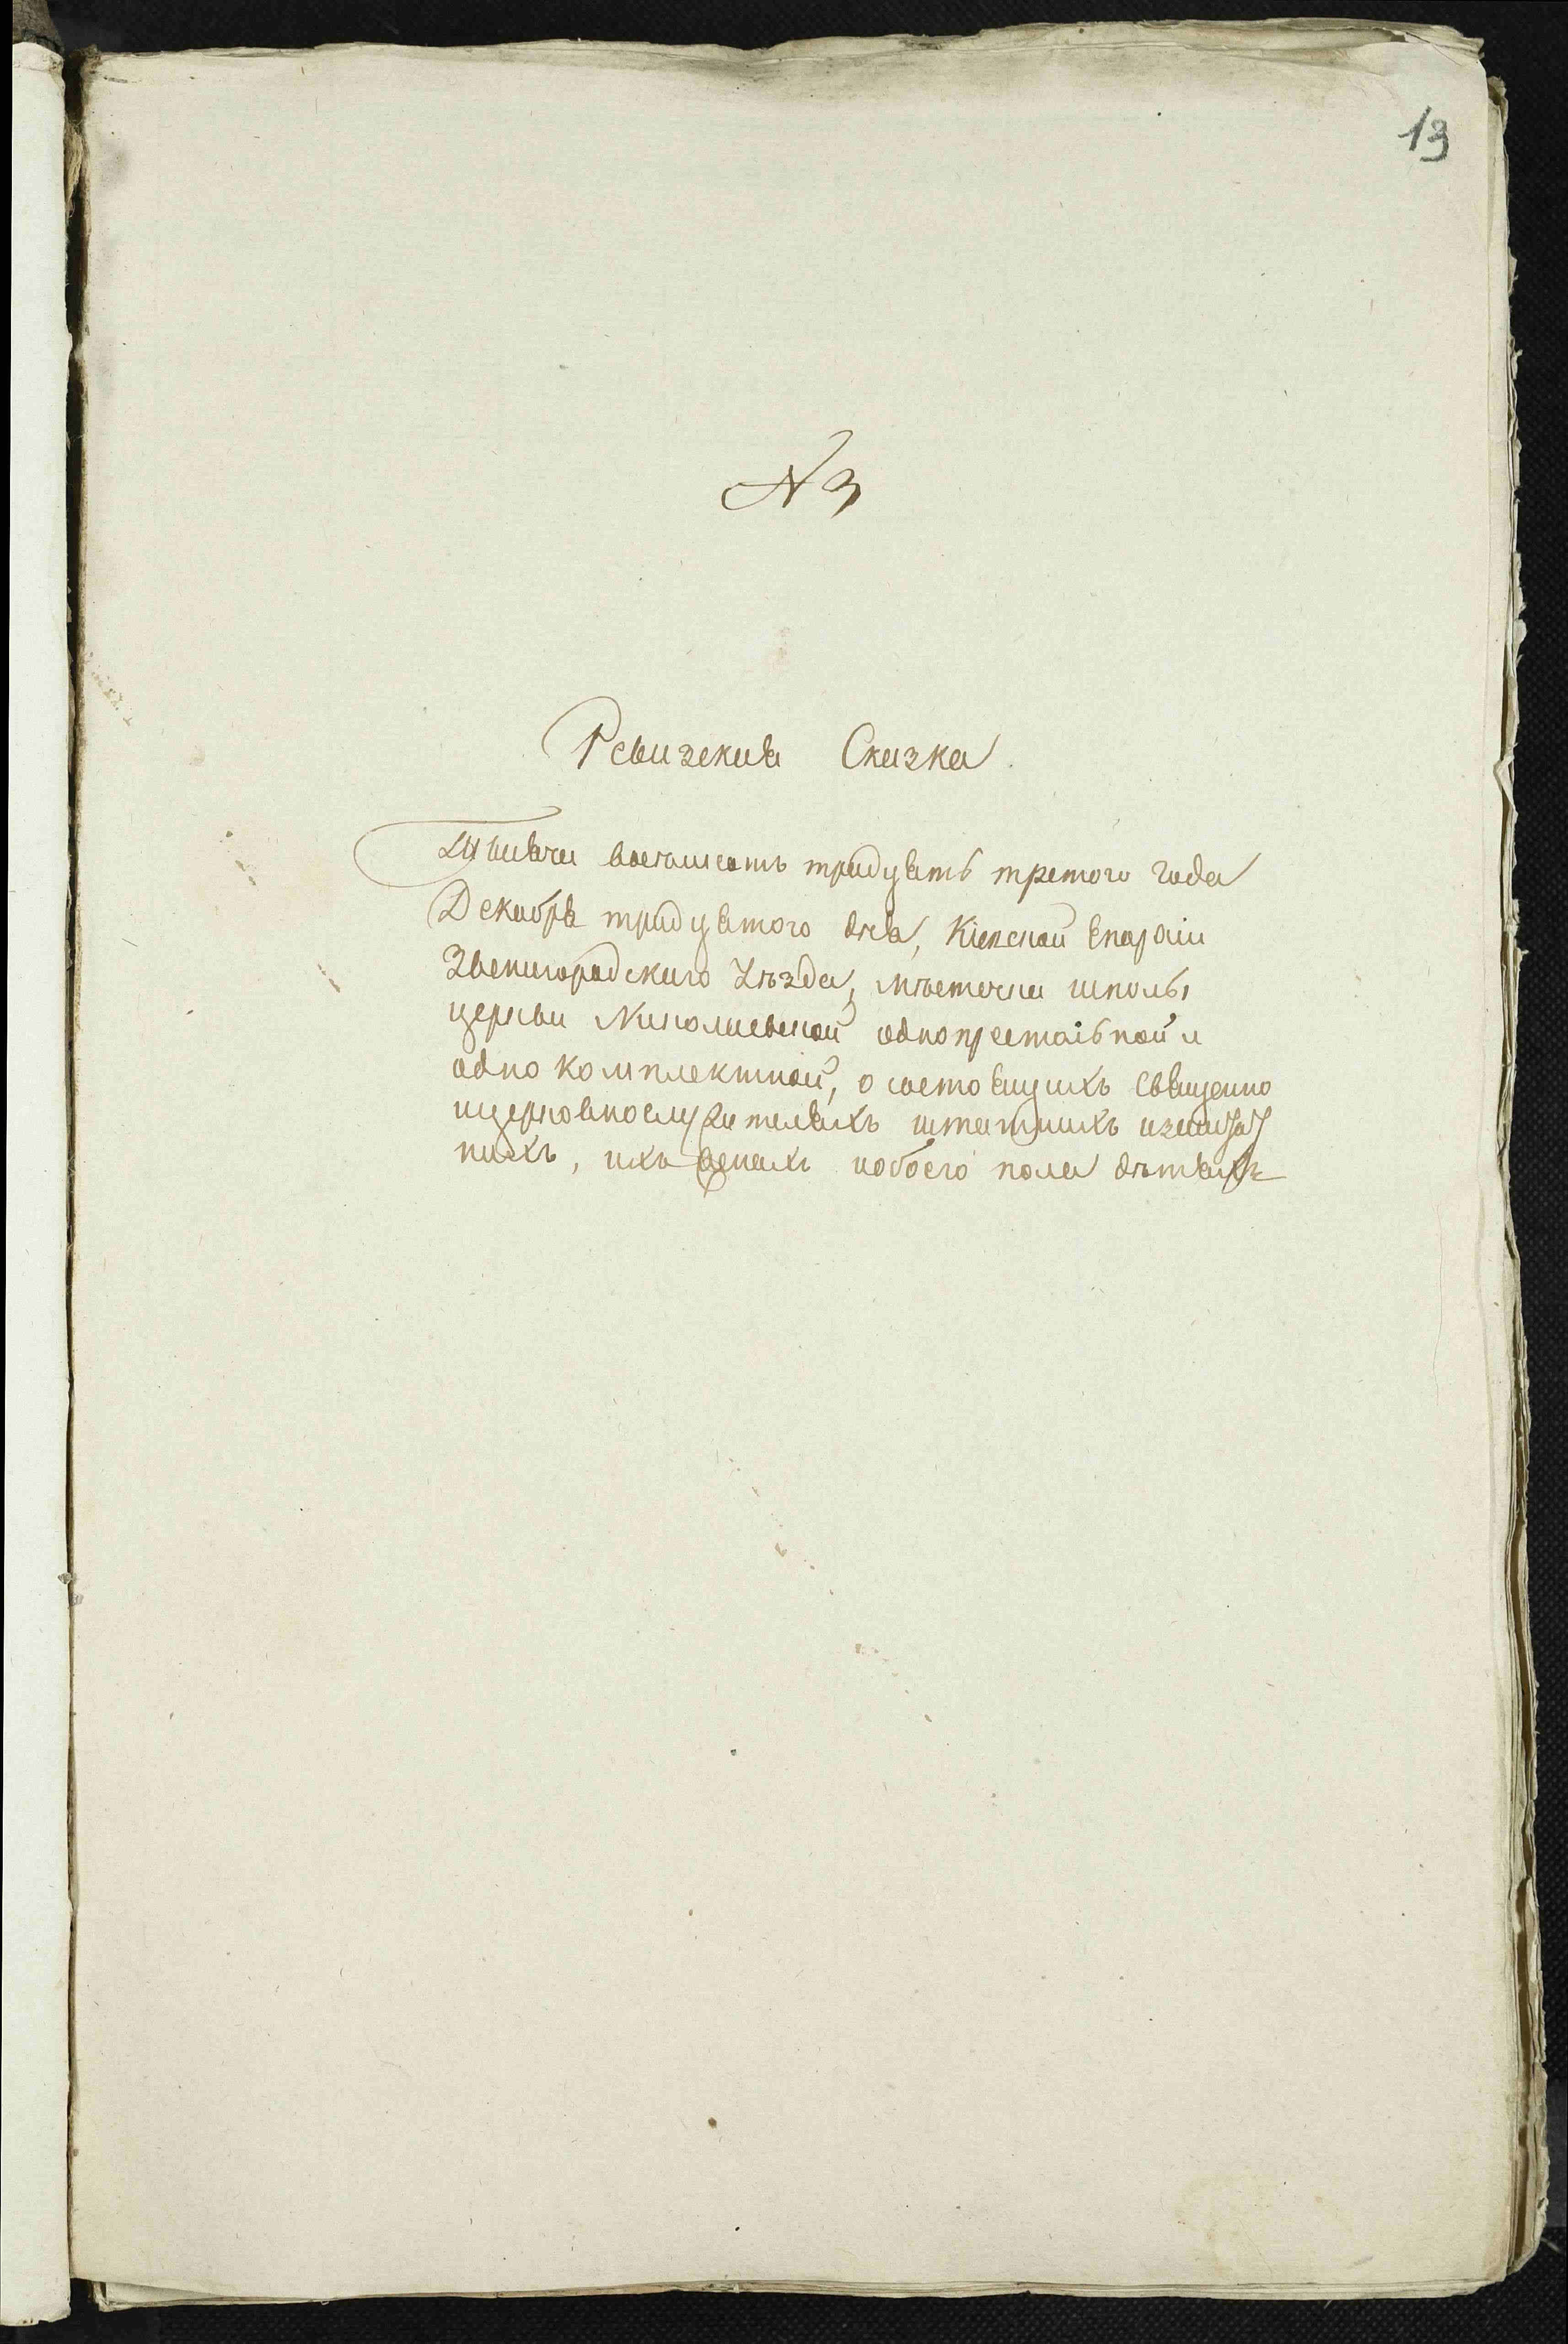 13
N 3
Ревизская Сказка.
Тысяча восемсотъ тридцать третого года
Декабря тридцятого дня, Кіевской Епархіи
Звенигородского Уѣзда, мѣстечка шполы
церкви Николаевской однопрестольной и
однокомплектной, о состоящихъ священно
ицерковнослужителяхъ штатныхъ изаштат
ныхъ, ихъ женахъ иобоего пола дѣтяхъ